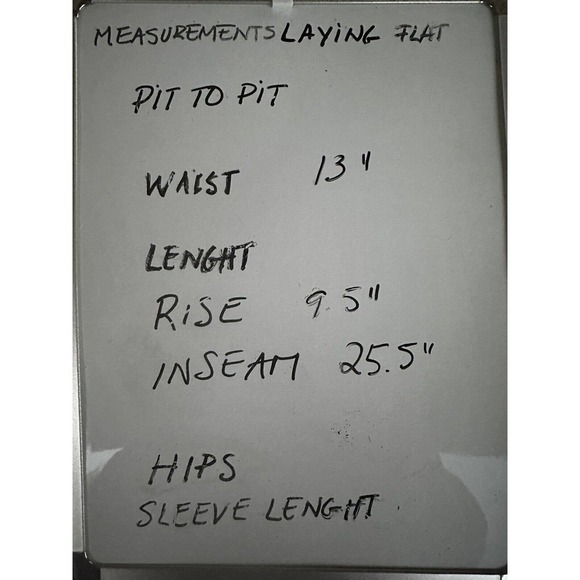 MEASUREMENTS LAYING FLAT
PIT TO PIT
WAIST 13"
LENGHT
RISE 9.5"
INSEAM 25.5"
HIPS
SLEEVE LENGHT